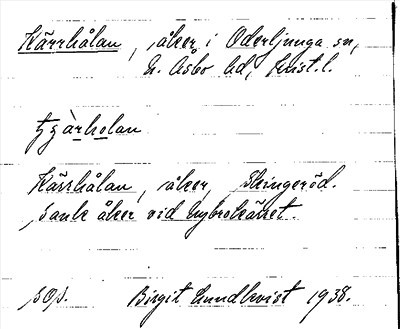 Kärrhålan, åker i Oderljunga sn,
N. Åsbo hd, Krist. l.
tʂàrholan
Kärrhålan, åker, Skingeröd.
Sank åker vid Nybrokärret.
sop. Birgit Lundkvist 1938.